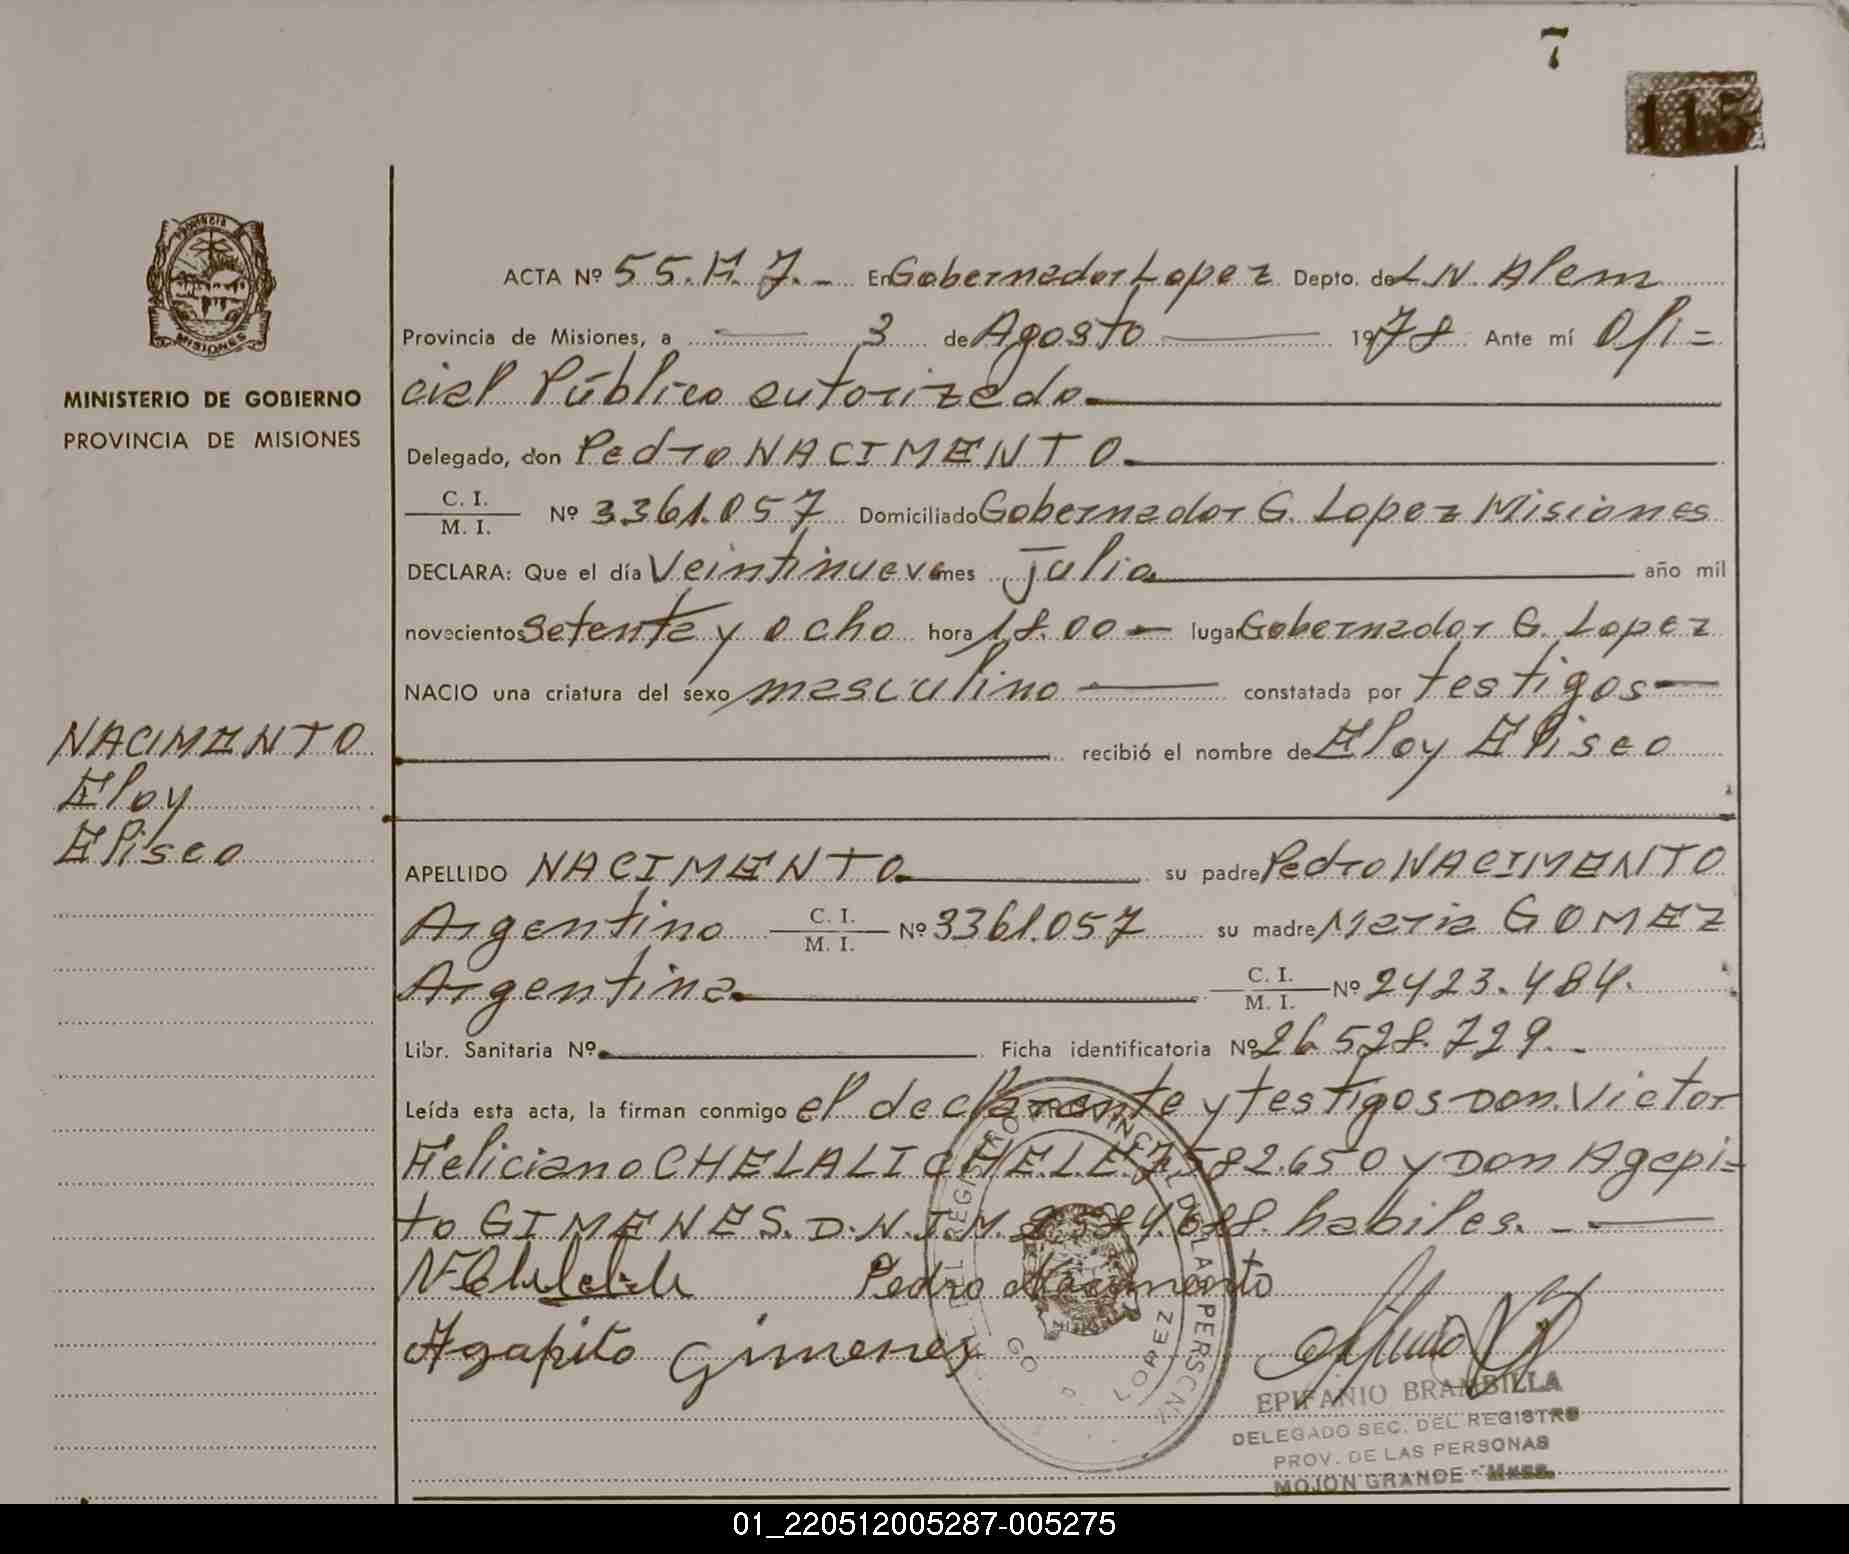 7
115
PROVINCIA
MISIONES
MINISTERIO DE GOBIERNO
PROVINCIA DE MISIONES
NACIMENTO
Eloy
Eliseo
ACTA Nº 55. F. 7.- En Gobernador Lopez Depto. de L.N. Alem
Provincia de Misiones, a 3 de Agosto 1978 Ante mí Ofi=
cial Público autorizado
Delegado, don Pedro NACIMENTO
C. I. / M. I. Nº 3361.057 Domiciliado Gobernador G. Lopez Misiones
DECLARA: Que el día Veintinueve mes Julio año mil
novecientos setenta y ocho hora 18.00 lugar Gobernador G. Lopez
NACIO una criatura del sexo masculino constatada por testigos
recibió el nombre de Eloy Eliseo
APELLIDO NACIMENTO su padre Pedro NACIMENTO
Argentino C. I. / M. I. Nº 3361.057 su madre Maria GOMEZ
Argentina C. I. / M. I. Nº 2423.484.
Libr. Sanitaria Nº Ficha identificatoria Nº 26.528.729.-
Leída esta acta, la firman conmigo el declarante y testigos Don. Victor
Feliciano CHELALICHE L.E. 7582.650 y Don Agapi=
to GIMENES. D.N.I.M. habiles.-
Pedro Nacimento
Agapito Gimenez
EPIFANIO BRAMBILLA
DELEGADO SEC. DEL REGISTRO
PROV. DE LAS PERSONAS
MOJON GRANDE - Mnes.
01_220512005287-005275